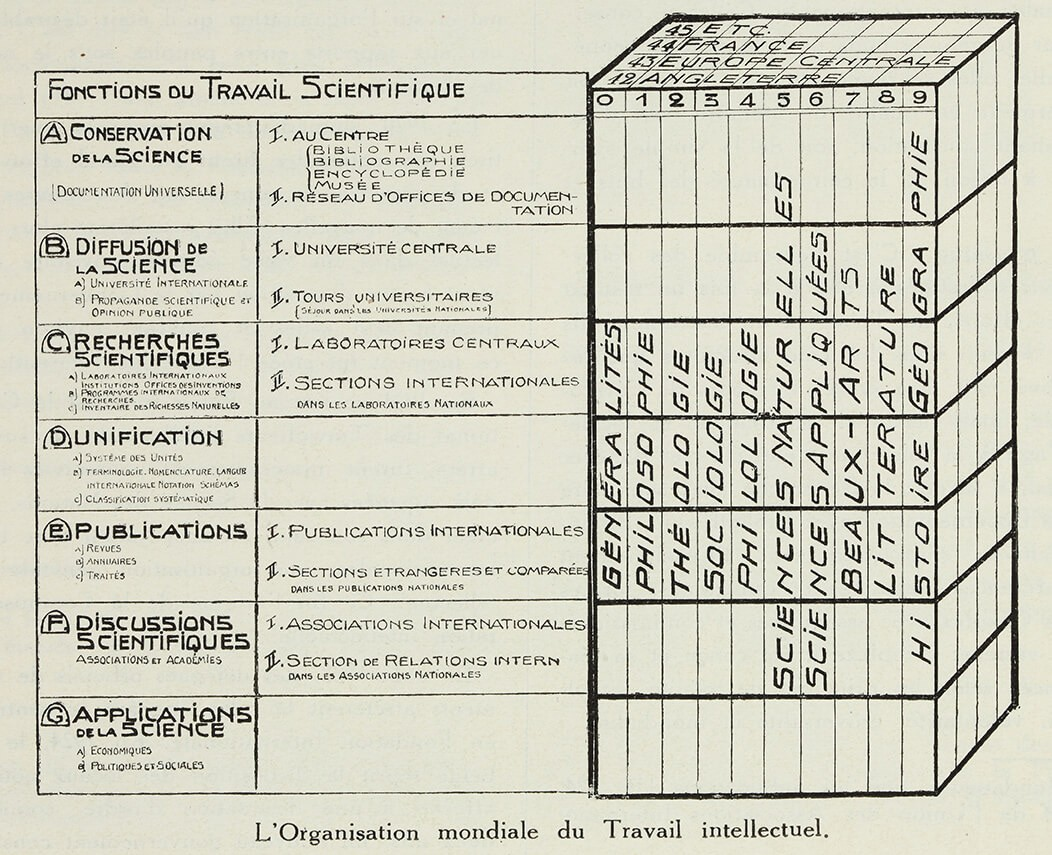 45 ETC.
44 FRANCE
43 EUROPE CENTRALE
42 ANGLETERRE
0 1 2 3 4 5 6 7 8 9
FONCTIONS DU TRAVAIL SCIENTIFIQUE
A CONSERVATION
DE LA SCIENCE
(DOCUMENTATION UNIVERSELLE)
I. AU CENTRE
BIBLIOTHÈQUE
BIBLIOGRAPHIE
ENCYCLOPÉDIE
MUSÉE
II. RÉSEAU D'OFFICES DE DOCUMEN-
TATION
B DIFFUSION DE
LA SCIENCE
A) UNIVERSITÉ INTERNATIONALE
B) PROPAGANDE SCIENTIFIQUE ET
OPINION PUBLIQUE
I. UNIVERSITÉ CENTRALE
II. TOURS UNIVERSITAIRES
(SÉJOUR DANS LES UNIVERSITÉS NATIONALES)
C RECHERCHES
SCIENTIFIQUES
A) LABORATOIRES INTERNATIONAUX
INSTITUTIONS OFFICES DES INVENTIONS
B) PROGRAMMES INTERNATIONAUX DE
RECHERCHES
C) INVENTAIRE DES RICHESSES NATURELLES
I. LABORATOIRES CENTRAUX
II. SECTIONS INTERNATIONALES
DANS LES LABORATOIRES NATIONAUX
D UNIFICATION
A) SYSTÈME DES UNITÉS
B) TERMINOLOGIE. NOMENCLATURE. LANGUE
INTERNATIONALE NOTATION SCHÉMAS
C) CLASSIFICATION SYSTÉMATIQUE
E PUBLICATIONS
A) REVUES
B) ANNUAIRES
C) TRAITÉS
I. PUBLICATIONS INTERNATIONALES
II. SECTIONS ETRANGERES ET COMPARÉES
DANS LES PUBLICATIONS NATIONALES
F DISCUSSIONS
SCIENTIFIQUES
ASSOCIATIONS ET ACADÉMIES
I. ASSOCIATIONS INTERNATIONALES
II. SECTION DE RELATIONS INTERN
DANS LES ASSOCIATIONS NATIONALES
G APPLICATIONS
DE LA SCIENCE
A) ECONOMIQUES
B) POLITIQUES ET SOCIALES
GÉNÉRALITÉS
PHILOSOPHIE
THÉOLOGIE
SOCIOLOGIE
PHILOLOGIE
SCIENCES NATURELLES
SCIENCES APPLIQUÉES
BEAUX-ARTS
LITTERATURE
HISTOIRE GÉOGRAPHIE
L'Organisation mondiale du Travail intellectuel.